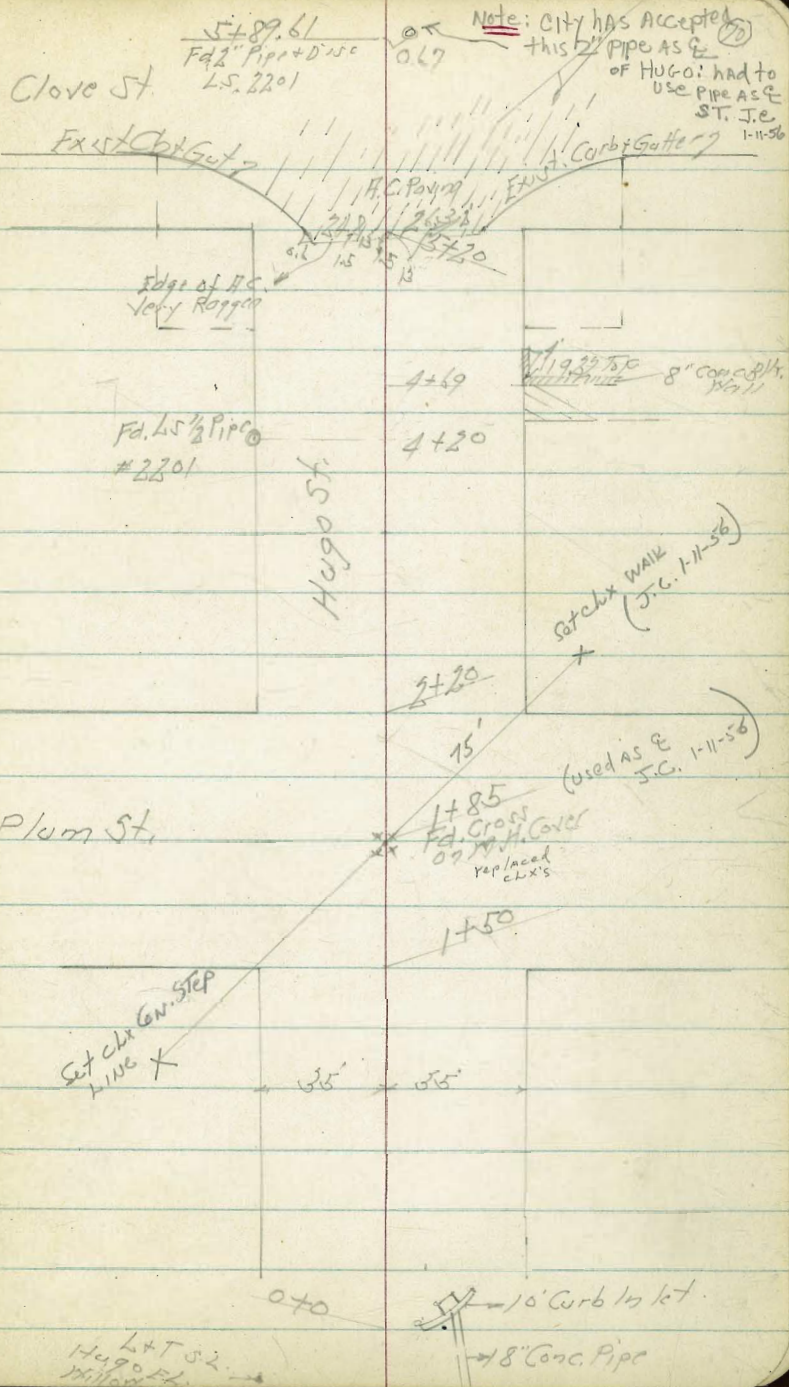 5+89.61
Fd 2" Pipe + Disc
L.S. 2201
0.67
Note: City has Accepted
this 2" pipe As ℄
of Hugo: had to
use pipe As ℄
ST. J.C.
1-11-56
70
Clove St.
Exist Cb + Gut
Exist. Curb + Gutter
A.C. Paving
5+20
1.5
Edge of A.C.
Very Ragged
4+69
19.27 Top
8" Conc. Blk.
Wall
Fd. LS ½ Pipe
#2201
4+20
Hugo St.
Set chx WAlk
(J.C. 1-11-56)
2+20
15'
(used As ℄
J.C. 1-11-56)
1+85
Fd. Cross
on M.H. Cover
replaced
chx's
Plum St.
1+50
Set chx CN. Step
Line
35' 35'
0+0
10' Curb Inlet
18" Conc. Pipe
L+T S.L.
Hugo E.L.
Willow